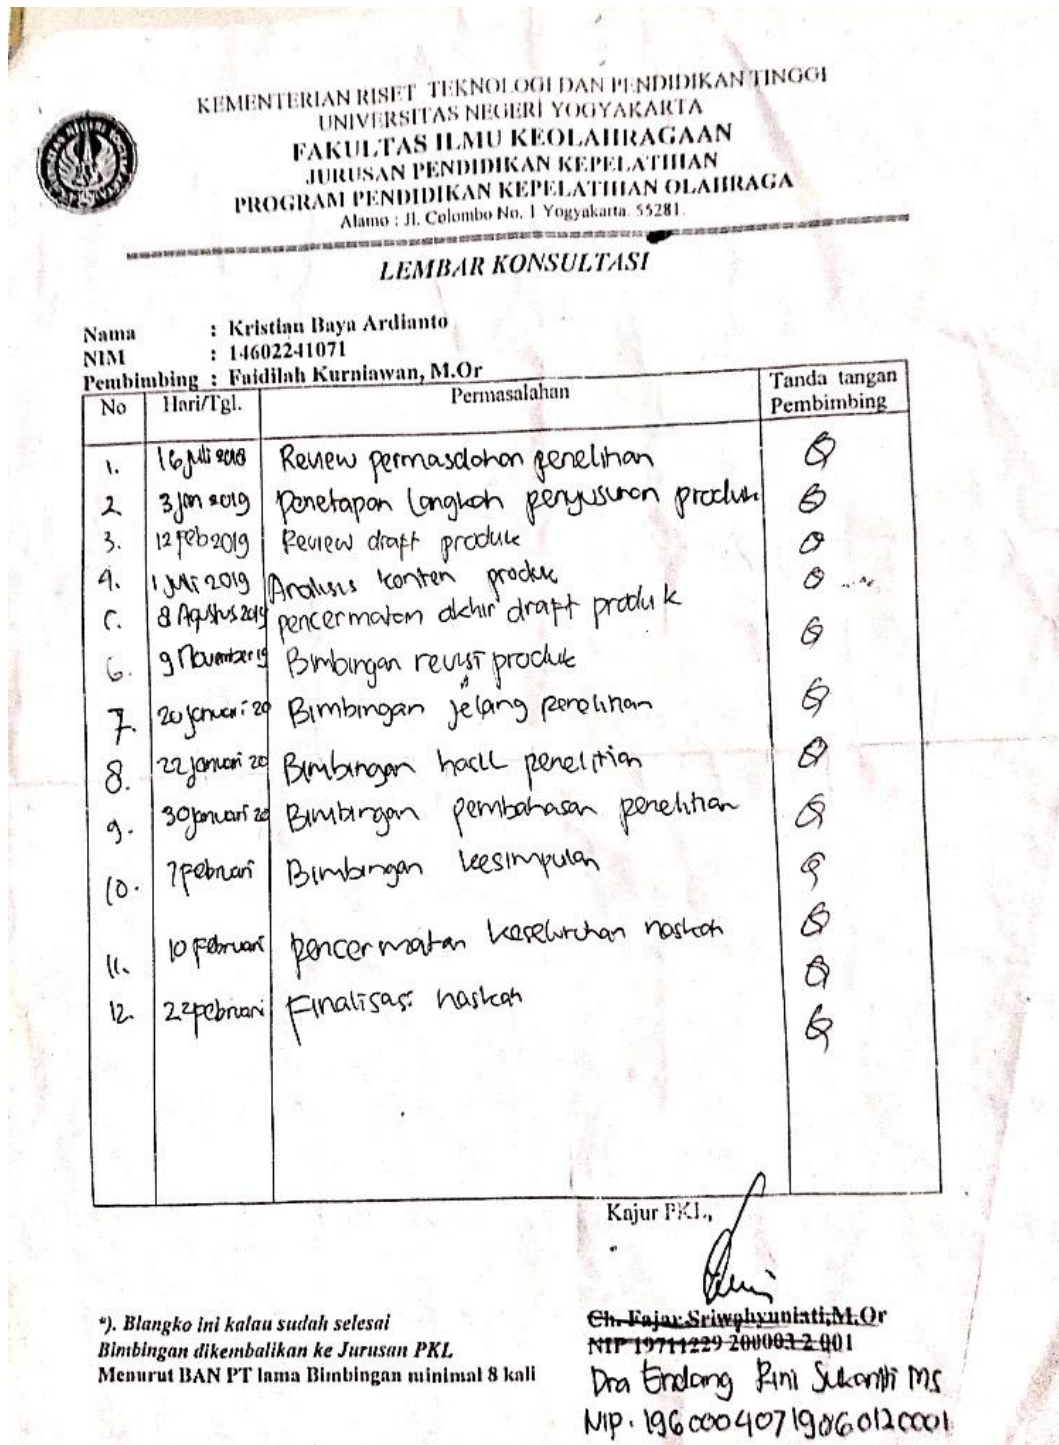 KEMENTERIAN RISET TEKNOLOGI DAN PENDIDIKAN TINGGI
UNIVERSITAS NEGERI YOGYAKARTA
FAKULTAS ILMU KEOLAHRAGAAN
JURUSAN PENDIDIKAN KEPELATIHAN
PROGRAM PENDIDIKAN KEPELATIHAN OLAHRAGA
Alamo : Jl. Colombo No. 1 Yogyakarta. 55281.
LEMBAR KONSULTASI
Nama : Kristian Baya Ardianto
NIM : 14602241071
Pembimbing : Faidilah Kurniawan, M.Or
No Hari/Tgl. Permasalahan Tanda tangan Pembimbing
1. 16 Juli 2018 Review permasalahan penelitian
2 3 Jan 2019 Penetapan langkah penyusunan produk
3. 12 Feb 2019 Review draft produk
4. 1 Juli 2019 Analisis konten produk
5. 8 Agustus 2019 pencermatan akhir draft produk
6. 9 November 19 Bimbingan revisi produk
7. 20 januari 20 Bimbingan jelang penelitian
8. 22 januari 20 Bimbingan hasil penelitian
9. 30 januari 20 Bimbingan pembahasan penelitian
10. 7 Februari Bimbingan kesimpulan
11. 10 Februari pencermatan keseluruhan naskah
12. 22 Februari Finalisasi naskah
Kajur PKL,
*). Blangko ini kalau sudah selesai
Bimbingan dikembalikan ke Jurusan PKL
Menurut BAN PT lama Bimbingan minimal 8 kali
Ch. Fajar Sriwahyuniati,M.Or
NIP 19711229 200003 2 001
Dra Endang Rini Sukamti MS
Nip. 19600040719860120001